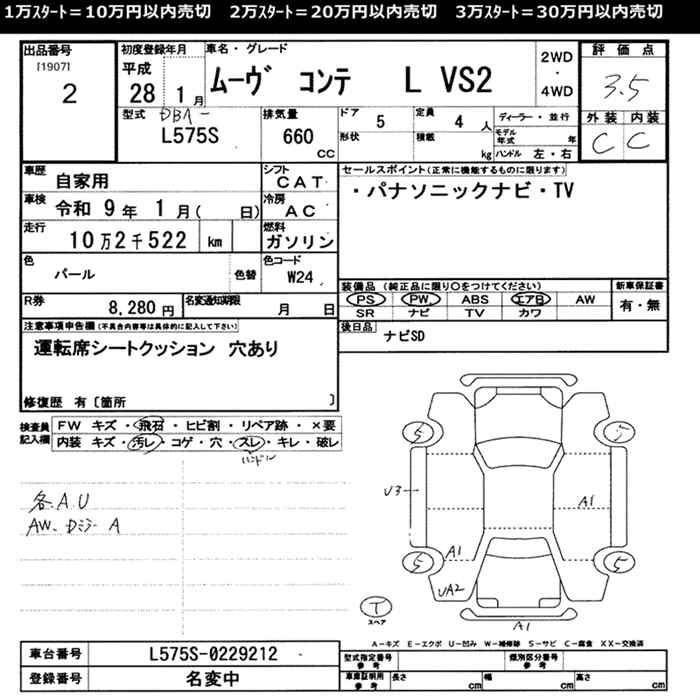 1万スタート＝10万円以内売切　2万スタート＝20万円以内売切　3万スタート＝30万円以内売切
出品番号
[1907]
2
初度登録年月
平成
28 1月
車名・グレード
ムーヴ コンテ L VS2
2WD
・
4WD
評価点
3.5
型式 DBA－
L575S
排気量
660
cc
ドア 5
形状
定員 4人
積載 kg
ディーラー・並行
モデル年式 年
ハンドル 左・右
外装 内装
C C
車歴
自家用
シフト
CAT
車検
令和 9年 1月( 日)
冷房
AC
走行
10万2千522 km
燃料
ガソリン
色
パール
色替
色コード
W24
R券
8,280円
名変通知期限
月 日
セールスポイント(正常に機能するものに限ります)
・パナソニックナビ・TV
装備品 (純正品に限り○をつけてください)
PS PW ABS エアB AW
SR ナビ TV カワ
新車保証書
有・無
後日品
ナビSD
注意事項申告欄(不具合内容等は具体的に記入して下さい)
運転席シートクッション 穴あり
修復歴 有〔箇所 〕
検査員
記入欄
FW キズ・飛石・ヒビ割・リペア跡・×要
内装 キズ・汚レ・コゲ・穴・スレ・キレ・破レ
ハンドル
各A.U
AW、Dミラー A
5
5
U3
A1
A1
5
5
UA2
T
スペア
A1
A－キズ E－エクボ U－凹み W－補修跡 S－サビ C－腐食 XX－交換済
車台番号
L575S-0229212
登録番号
名変中
型式指定番号
参考
類別区分番号
参考
車庫証明用
参考
長さ cm
幅 cm
高さ cm